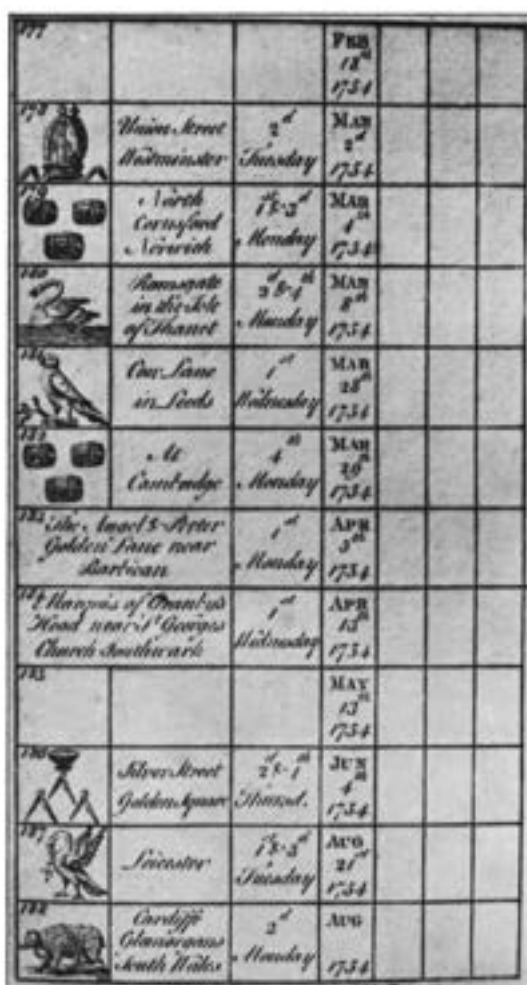 177
FEB
18th
1754
178
Union Street
Westminster
2d
Tuesday
MAR
2d
1754
179
North
Cornsford
Norwich
1st & 3d
Monday
MAR
4th
1754
180
Ramsgate
in the Isle
of Thanet
2d & 4th
Monday
MAR
8th
1754
181
Cow Lane
in Leeds
1st
Wednesday
MAR
28th
1754
182
At
Cambridge
4th
Monday
MAR
29th
1754
183
The Angel & Porter
Golden Lane near
Barbican
1st
Monday
APR
3th
1754
184
Marquis of Granby's
Head near St Georges
Church Southwark
1st
Wednesday
APR
13th
1754
185
MAY
13th
1754
186
Silver Street
Golden Square
2d &
JUN
4th
1754
187
Leicester
1st & 3d
Tuesday
AUG
21st
1754
188
Cardiff
Glamorgans
South Wales
2d
Monday
AUG
1754